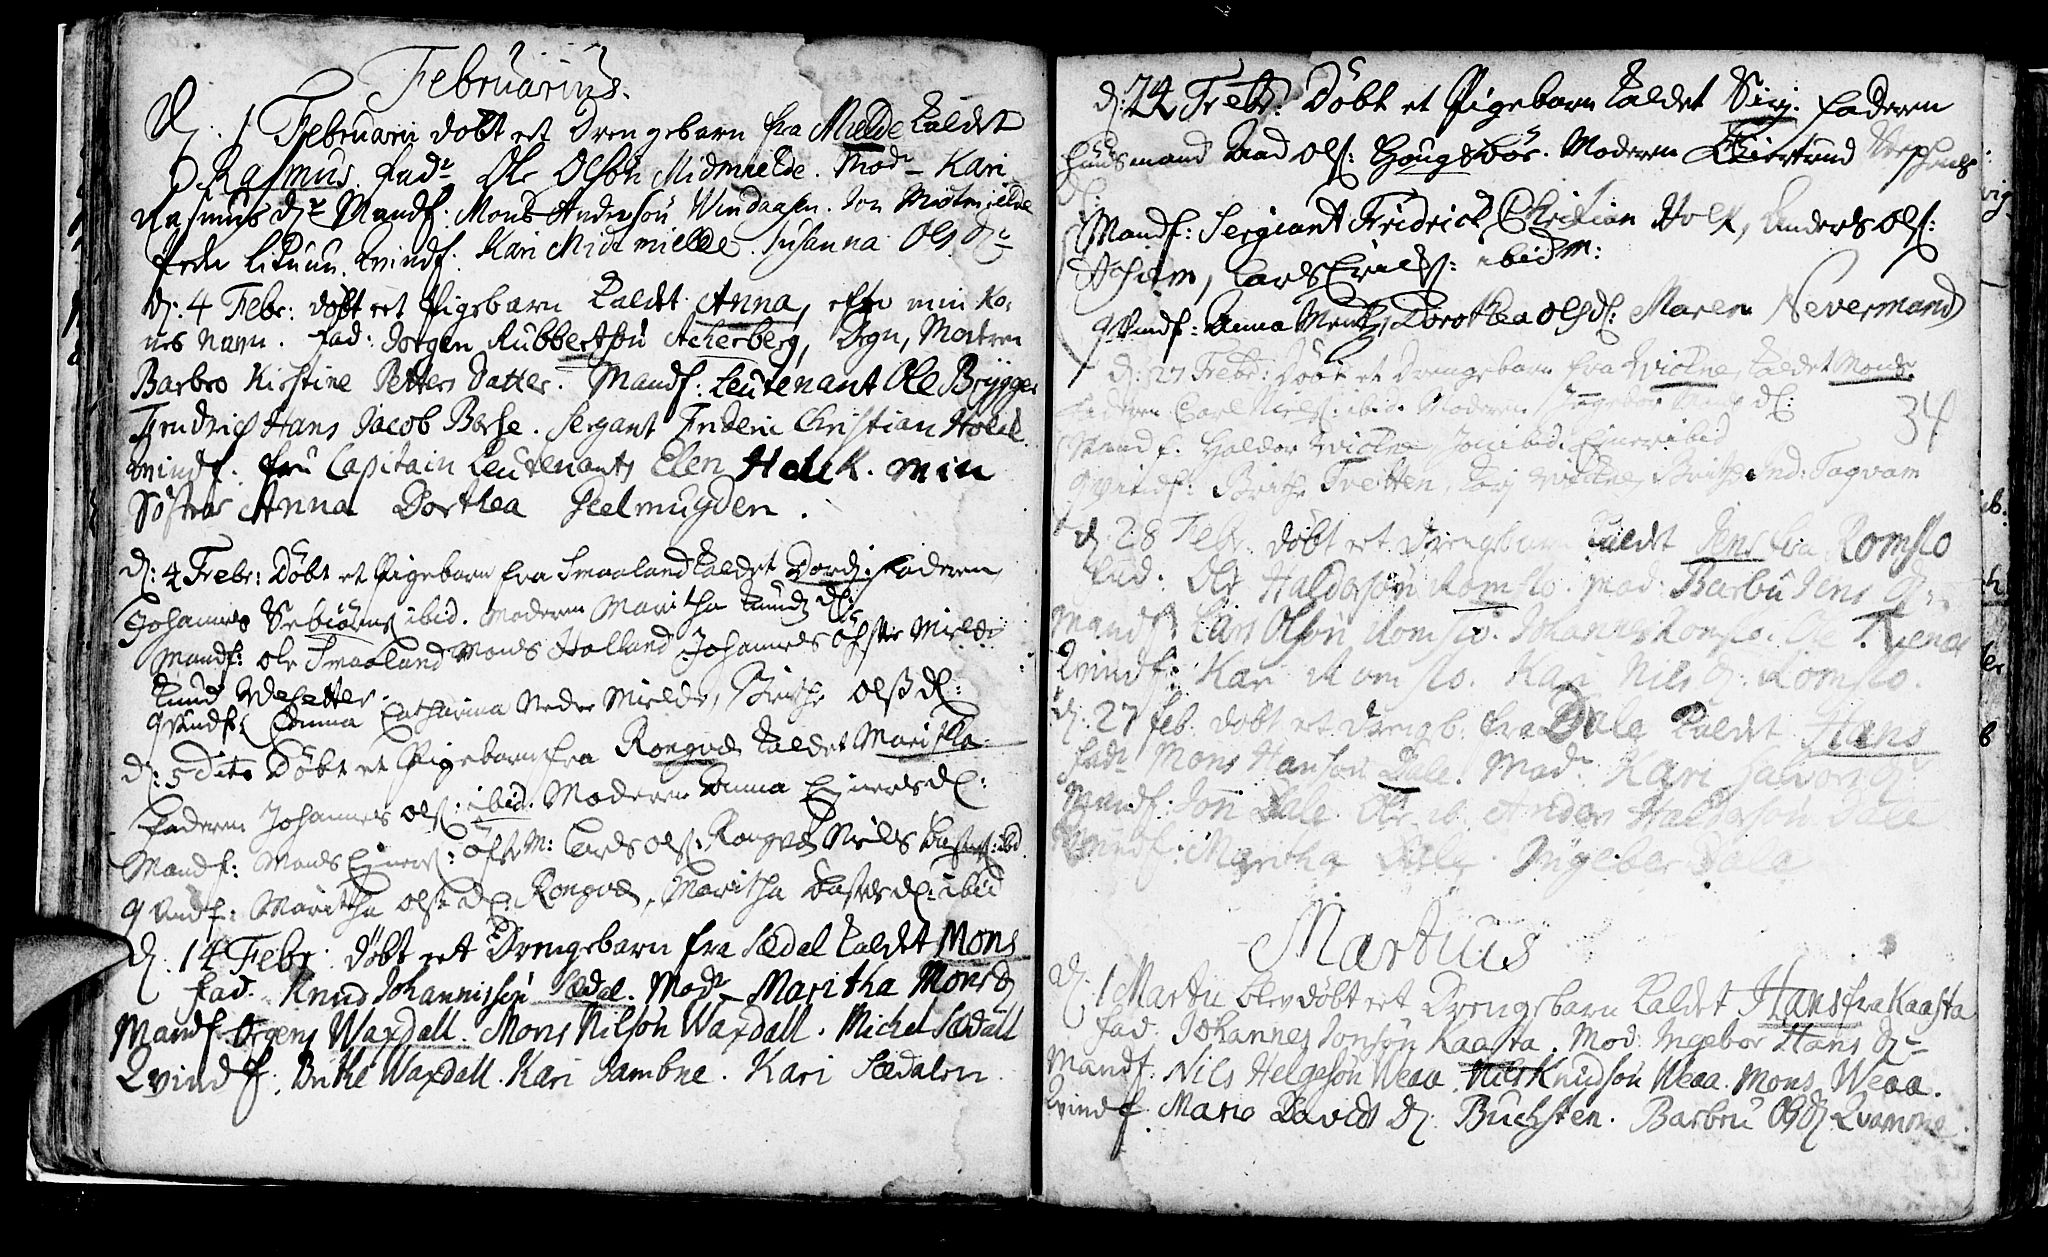 Februarius.
D. 1 Februarii döbt eet Drengebarn fra Mielde kaldet
Rasmus. Fadr Ole Olsön Midmielde. Modr Kari
Rasmus Dr Mandf: Mons Andersön Windaasen. Jon Midmielde
Peder Kvindf: Kari Midmielde. Susanna Ols Dr
d: 4 Febr: döbt eet Pigebarn kaldet Anna, efter min Ko:
nes navn. Fad: Jörgen Rubbertsön Acherberg, Degn, Moderen
Barbro Kirstine Petters Datter. Mandf: Leutenant Ole Brygger
Hendrich Hans Jacob Borse. Sergant Frideric Christian Holck.
Kvindf. Fru Capitain Leutenants Elen Holck. min
Söster Anna Dorthea Heelmugden.
d: 4 Febr: Döbt et Pigebarn fra Smaaland kaldet Dordj. Faderen
Johannes ibid. Moderen Maritha Knuds dr:
Mandf: Ole Smaaland Mons Holland Johannes öfste Mielde
Knud Wefetter.
qvindf: Anna Catharina Nedre Mielde, Birithe Olsdr:
d: 5 dito Döbt et Pigebarn fra Rongved kaldet Maritha
Faderen Johannes Ols: ibid. Moderen Anna Ejnersdr:
Mandf: Mons Ejners: öfste M: Lars Ols: Rongved Niels ibid
qvindf: Maritha Olsdr: Rongved, Maritha dr: ibid
d. 14 Febr: döbt eet Drengebarn fra Sædal kaldet Mons
Fad. Knud Johannissön Sædal. Modr Maritha Mons Dr
Mandf. Örgens Waxdall. Mons Nilsön Waxdall. Michel Sædall
Qvindf: Brite Waxdall. Kari Jambne. Kari Sædalen.
d: 24 Febr: Döbt et Pigebarn kaldet Siri. Faderen
huusmand Knud Ols: Hougsdör. Moderen Giertrud
dr:
Mandf: Sergiant Fridrick Christian Holk, Anders Ols:
Aasheim, Lars Ericks: ibidm:
qvindf: Anna Dorothea Olsdr: Maren Nevermand
d: 27 Febr: Döbt et Drengebarn fra Wichne, kaldet Mons
Faderen Carl Niels: ibid. Moderen Ingebor dr:
34
Mandf. Haldor Wichne, Jon ibid. Ejner ibid
qvindf: Birithe Tvetten, Wichne, Birithe Tagvam
d. 28 Febr. döbt eet Drengebarn kaldet Jens fra Romslo
Fad. Ole Haldorsön Romslo. Mod: Barbru Jens Dr
Mandf: Lars Olsön Romslo. Johannes Romslo. Ole Tienes
Qvindf: Kari Romslo. Kari Nils dr. Romslo.
d: 27 Feb. döbt eet Drengb. fra Dale kaldet Hans
Fadr Mons Hansön Dale. Modr Kari Halvors Dr
Mandf. Jon Dale. Ole ib. Anders Haldorsön Dale
Qvindf: Maritha Dale. Ingebor Dale
Martius
d. 1 Martii blev döbt eet Drengebarn kaldet Hans fra Kaasta
Fad. Johannes Jonsön Kaasta. Mod: Ingebor Hans Dr
Mandf. Nils Helgesön Weaa. Nils Knudsön Weaa. Mons Weaa.
Qvindf. Maria Davids Dr. Buchsten. Barbru Ols Dr Qvamme.